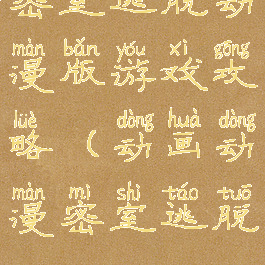 密室逃脱动
màn bǎn yóu xì gōng
漫版游戏攻
lüè dòng huà dòng
略（动画动
màn mì shì táo tuō
漫密室逃脱